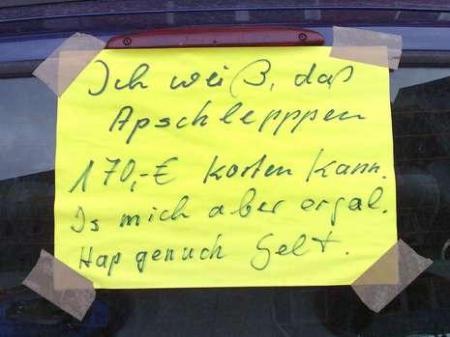 Ich weiß, daß
Apschlepppen
170,-€ kosten kann.
Is mich aber egal.
Hap genuch Gelt.